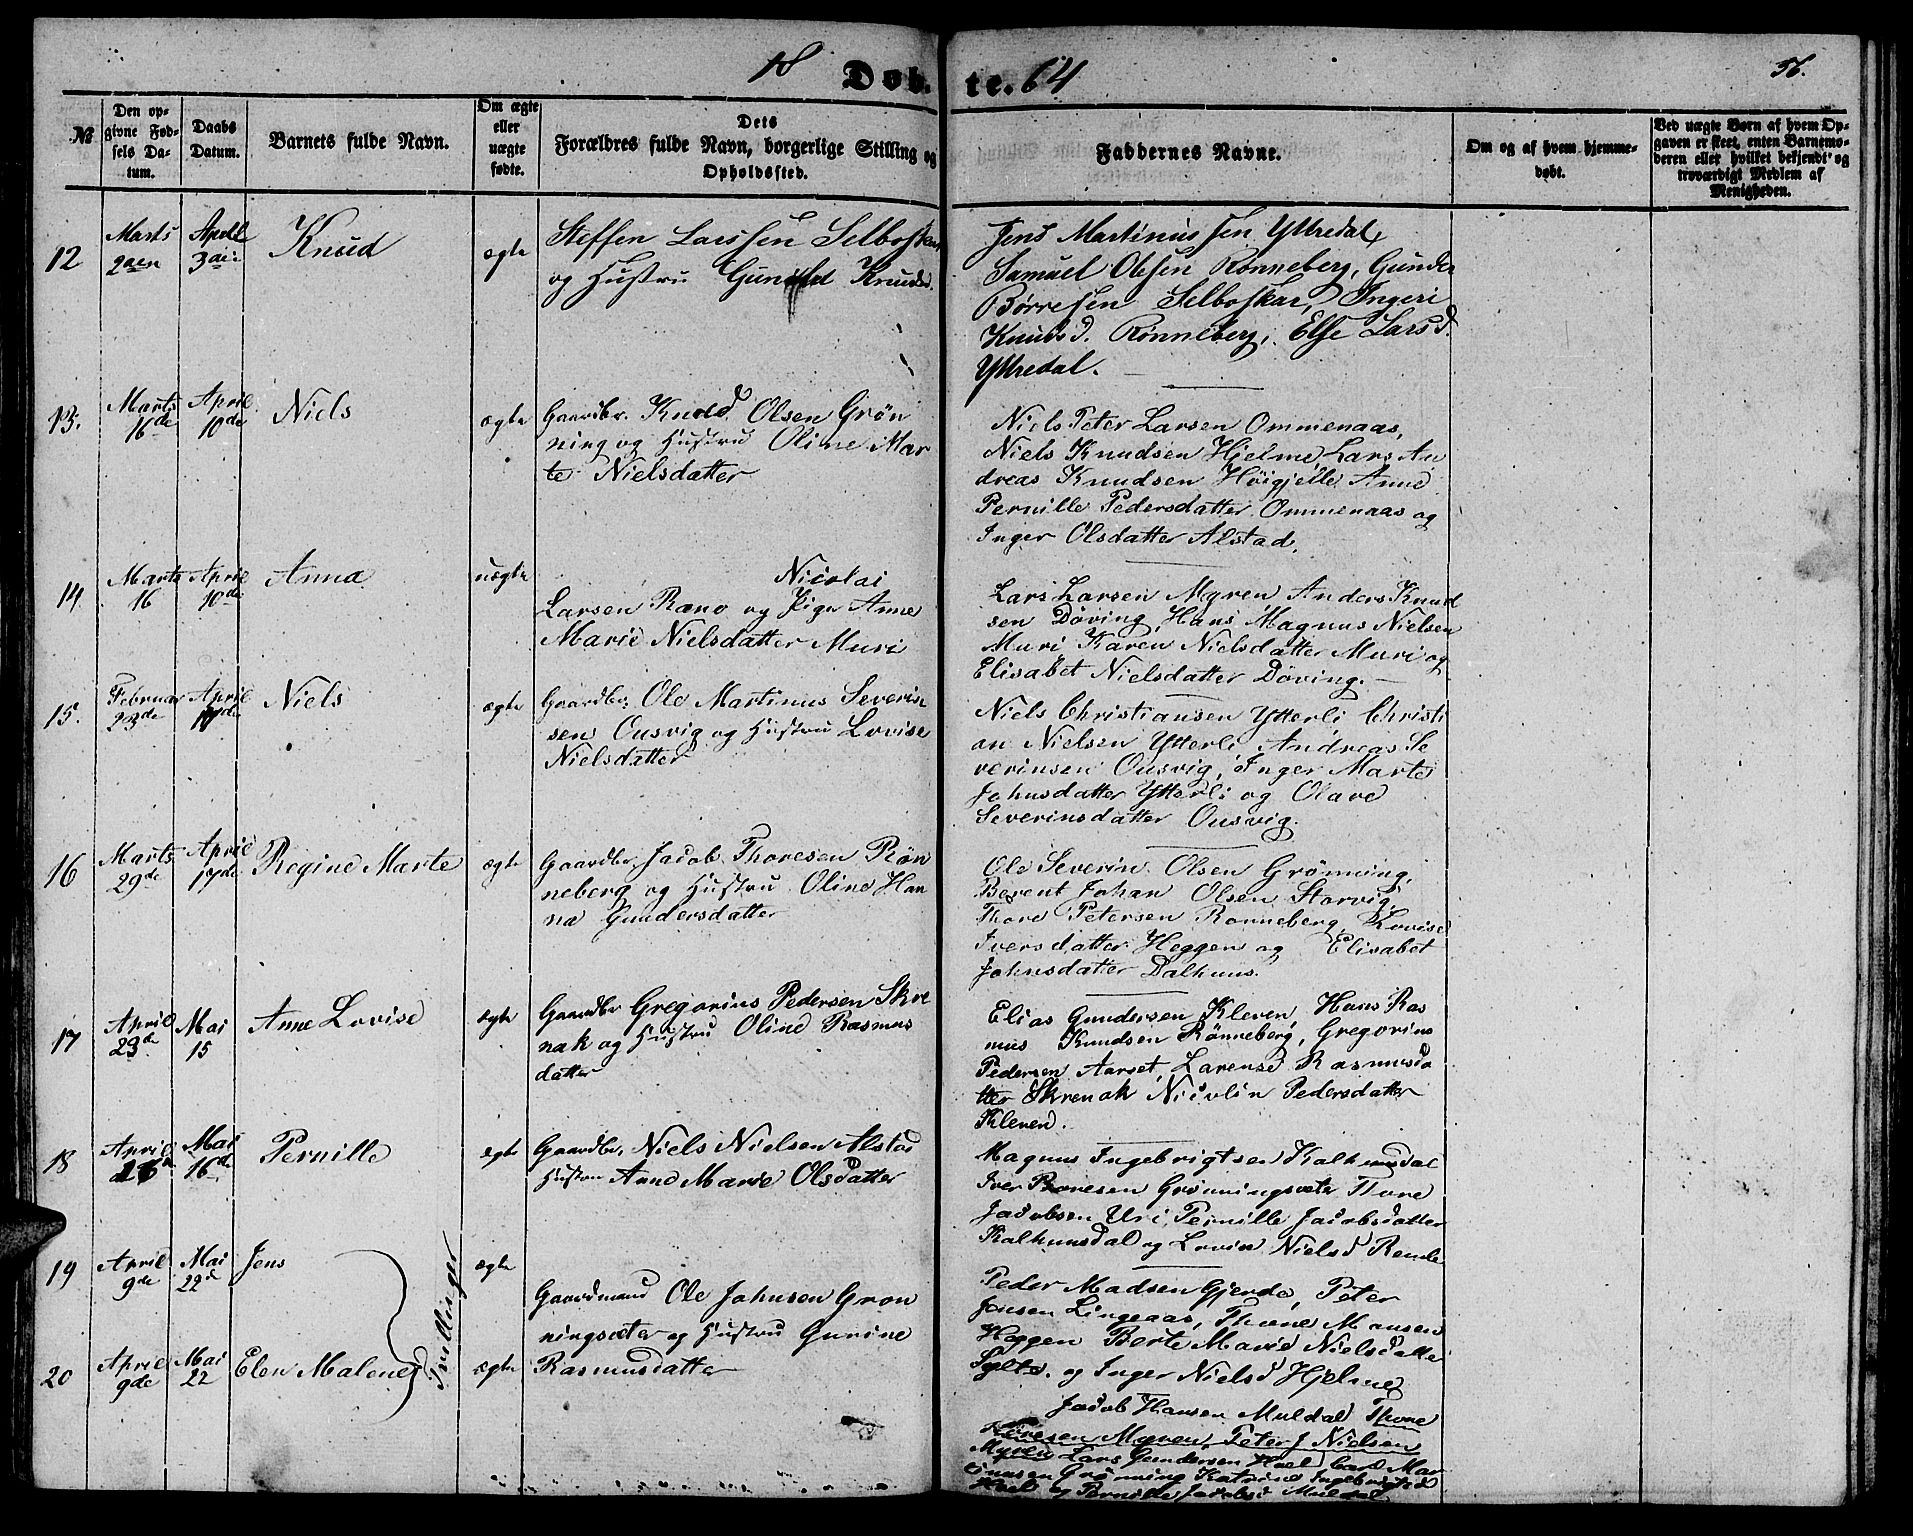 18 Døb- te. 64
56.
№
Den op-
givne Fød-
sels Da-
tum.
Daabs
Datum.
Barnets fulde Navn.
Om ægte
eller
uægte
fødte.
Dets
Forældres fulde Navn, borgerlige Stilling og
Opholdssted.
Faddernes Navne.
Om og af hvem hjemme-
døbt.
Ved uægte Børn af hvem Op-
gaven er skeet, enten Barnemo-
deren eller hvilket bekjendt og
troværdigt Medlem af
Menigheden.
12
Marts
2den
April
3die
Knud
ægte
Steffen Larssen Selboskar
og Hustru Gunild Knudsd.
Jens Martinussen Yttredal,
Samuel Olsen Rønneberg, Gunder
Børresen Selboskar, Ingeri
Knudsd. Rønneberg, Else Larsd.
Yttredal.
13.
Marts
16de
April
10de
Niels
ægte
Gaardbr. Knud Olsen Grøn
ning og Hustru Oline Mar
te Nielsdatter
Niels Peter Larsen Ommenaas,
Niels Knudsen Hjelme, Lars An
dreas Knudsen Høigjelle Anne
Pernille Pedersdatter Ommenaas og
Inger Olsdatter Alstad.
14
Marts
16
April
10de
Anna
uægte
Nicolai
Larsen Ræno og Pige Anne
Marie Nielsdatter Muri
Lars Larsen Myren Anders Knud
sen Døving, Hans Magnus Nielsen
Muri Karen Nielsdatter Muri og
Elisabet Nielsdatter Døving.
15.
Februar
23de
April
17de
Niels
ægte
Gaardbr. Ole Martinus Severin
sen Ousvig og Hustru Lovise
Nielsdatter
Niels Christiansen Ytterli Christi
an Nielsen Ytterli Andreas Se
verinsen Ousvig, Inger Marte
Johnsdatter Ytterli og Olave
Severinsdatter Ousvig.
16
Marts
29de
April
17de
Regine Marte
ægte
Gaardbr. Jacob Thoresen Røn
neberg og Hustru Oline Han
na Gundersdatter
Ole Severin Olsen Grønning,
Berent Johan Olsen Storvig,
Thore Petersen Rønneberg, Lovise
Iversdatter Heggen og Elisabet
Johnsdatter Dalhuus.
17
April
23de
Mai
15
Anne Lovise
ægte
Gaardbr Gregorius Pedersen Skre
nak og Hustru Oline Rasmus
datter
Elias Gundersen Kleven, Hans Ras
mus Knudsen Rønneberg, Gregorius
Pedersen Aarset, Larense Rasmusda
tter Skrenak Nicolin Pedersdatter
Kleven.
18
April
Mai
16de
Pernille
egte
Gaardbr. Niels Nielsen Alstad
Hustru Anne Marie Olsdatter
Magnus Ingebrigtsen Kalhusdal
Iver Thoresen Grønningsæter Thore
Jacobsen Uri, Pernille Jacobsdatter
Kalhuusdal og Lovise Nielsd
19
April
9de
Mai
22d
Jens
Tvillinger
ægte
Gaardmand Ole Johnsen Grøn
ningsæter og Hustru Gunine
Rasmusdatter
Peder Madsen Gjerde, Peter
Jensen Lingeaas, Thore Monsen
Heggen Berte Marie Nielsdatter
Sylte. og Inger Nielsd Hjelme
20
April
9de
Mai
22
Elen Malene
ægte
Jacob Hansen Muldal Thore
Thoresen Myren, Peter J Nielsen
Myren Lars Gundersen Hoel, Lars Mar
tinusen Grønning Katrine Ingebrigtsd
og Pernille Jacobsd Muldal